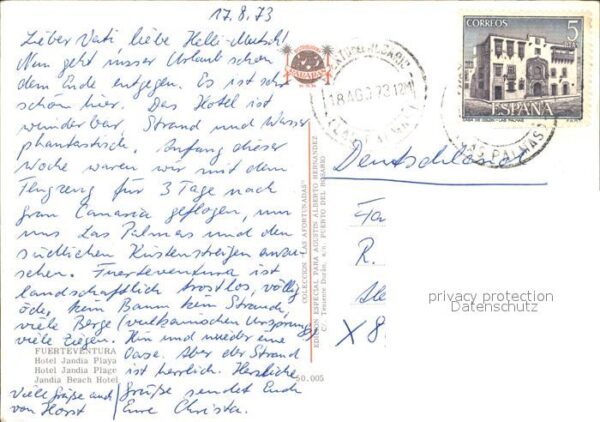 17.8.73
Lieber Vati, liebe Helli-Mutsch!
Nun geht unser Urlaub schon
dem Ende entgegen. Es ist sehr
schön hier. Das Hotel ist
wunderbar, Strand und Wasser
phantastisch. Anfang dieser
Woche waren wir mit dem
Flugzeug für 3 Tage nach
Gran Canaria geflogen, um
uns Las Palmas und den
südlichen Küstenstreifen anzu-
sehen. Fuerteventura ist
landschaftlich trostlos, völlig
öde, kein Baum kein Strauch,
viele Berge (vulkanischen Ursprungs)
viele Ziegen. Hin und wieder eine
Oase. Aber der Strand
ist herrlich. Herzliche
Grüße sendet Euch
Eure Christa.
Viele Grüße auch
von Horst
FUERTEVENTURA
Hotel Jandia Playa
Hotel Jandia Plage
Jandia Beach Hotel
50.005
COLECCION "LAS AFORTUNADAS"
EDICION ESPECIAL PARA AGUSTIN ALBERTO HERNANDEZ
C/. Teniente Durán, s/n. PUERTO DEL ROSARIO
18 AGO 73 12M
(LAS PALMAS)
CORREOS
5
PTA
ESPAÑA
CASA DE COLON - LAS PALMAS
(LAS PALMAS)
Deutschland
R.
X 8
privacy protection
Datenschutz